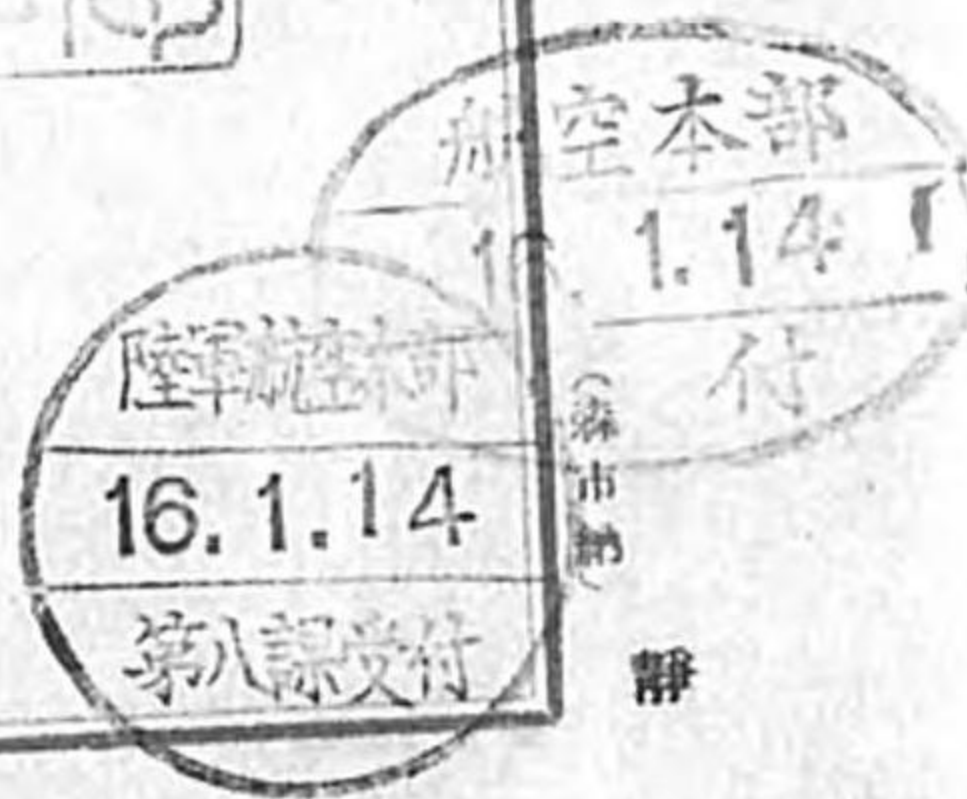 航空本部
1.14
付
陸軍航空本部
16.1.14
第八課受付
市納
靜